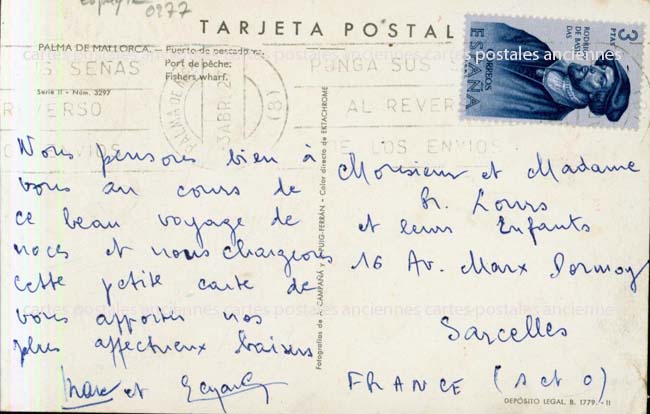 Espagne
0977
TARJETA POSTAL
PALMA DE MALLORCA. - Puerto de pescadores.
Port de pêche.
Fishers wharf.
Serie II - Núm. 3297
SEÑAS
REVERSO
ENVIOS
PALMA DE
ABR.
(8)
PONGA SUS
AL REVERSO
DE LOS ENVIOS
3 PTAS
RODRIGO DE BASTIDAS
ESPAÑA
cartes postales anciennes cartes postales anciennes
Nous pensons bien à
vous au cours de
ce beau voyage de
noces et nous chargeons
cette petite carte de
vous apporter nos
plus affectueux baisers
Marc et
Fotografías de CAMPAÑÁ y PUIG-FERRÁN - Color directo de EKTACHROME
Monsieur et Madame
Louis
et leurs Enfants
16 Av. Marx Dormoy
cartes postales anciennes cartes postales anciennes
Sarcelles
FRANCE (S et O)
DEPÓSITO LEGAL, B. 1779. - II